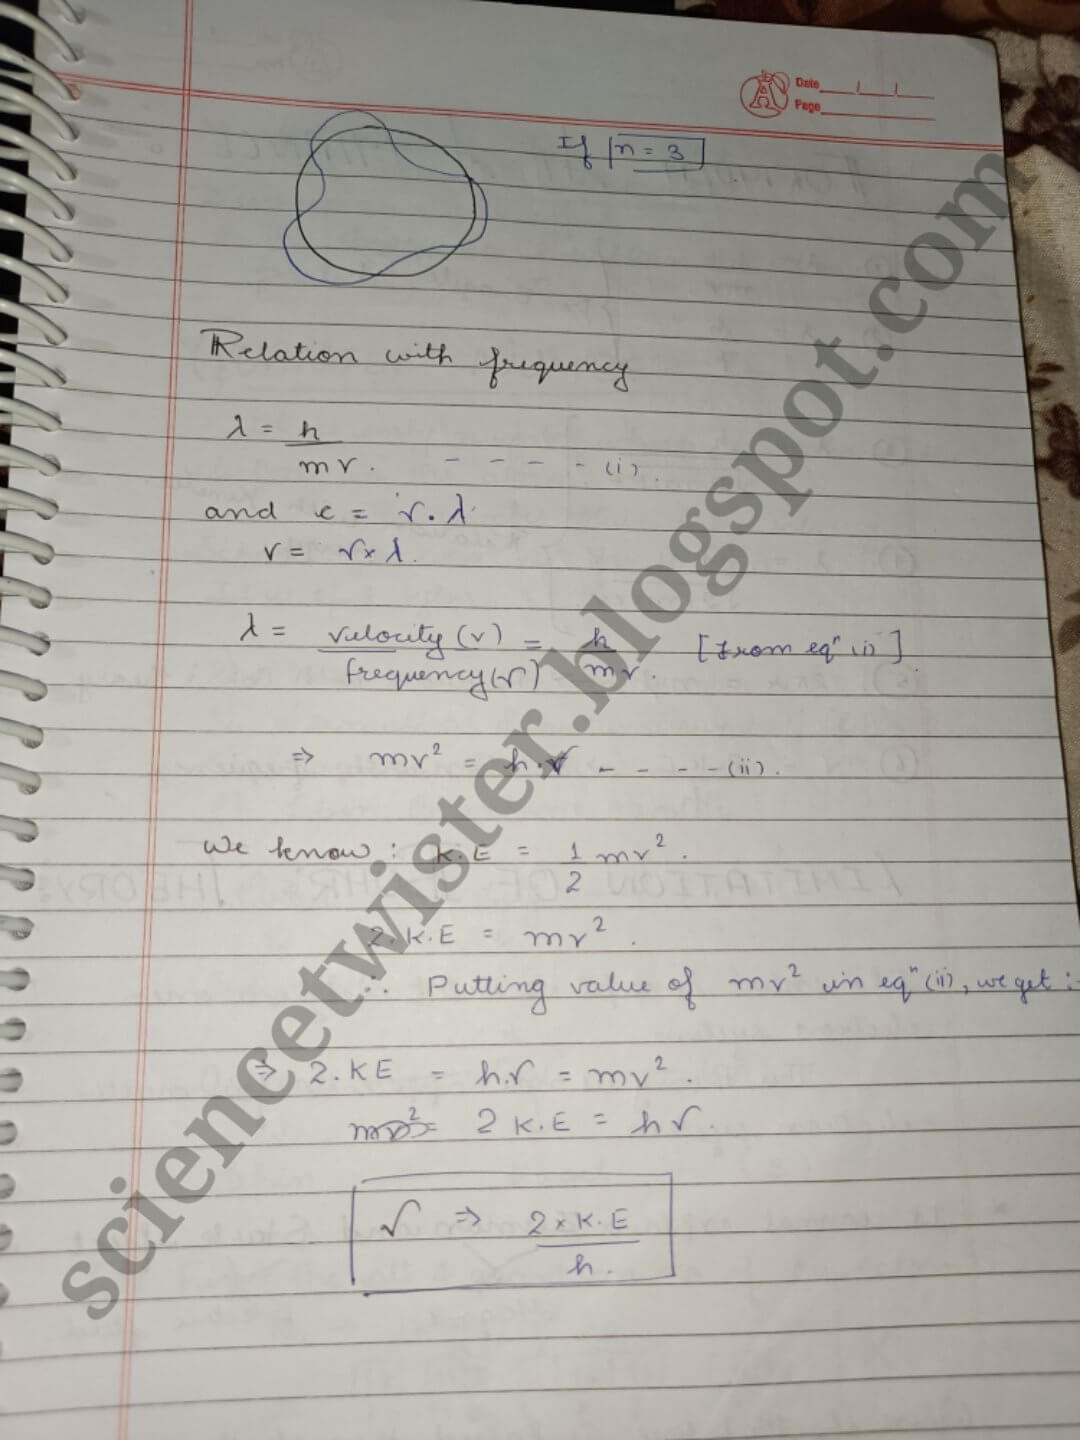 Date
Page
If n = 3
Relation with frequency
λ = h / mv. - - - - (i).
and c = ν . λ
v = ν × λ.
λ = velocity (v) / frequency (ν) = h / mv. [from eqⁿ (i)]
⇒ mv² = h.ν - - - - (ii).
We know : K.E = 1/2 mv².
2.K.E = mv².
∴ Putting value of mv² in eqⁿ (ii), we get :-
⇒ 2.KE = h.ν = mv².
2 K.E = hν.
ν ⇒ 2 × K.E / h.
sciencetwister.blogspot.com